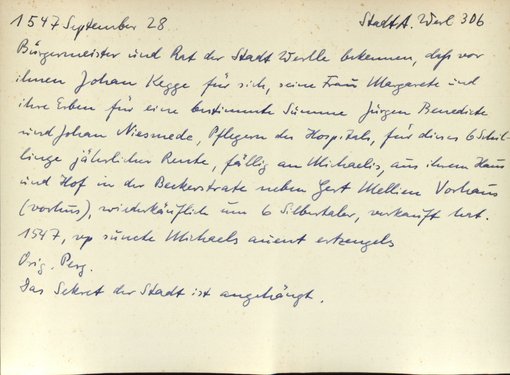 1547 September 28 StadtA. Werl 306
Bürgermeister und Rat der Stadt Werlle bekennen, daß vor
ihnen Johan Kegge für sich, seine Frau Margarete und
ihre Erben für eine bestimmte Summe Jürgen Benedicte
und Johan Niesmede, Pflegern des Hospitals, für dieses 6 Schil-
linge jährlicher Rente, fällig an Michaelis, aus ihrem Haus
und Hof in der Beckerstrate neben Gert Mellien Vorhaus
(vorhus), wiederkäuflich um 6 Silbertaler, verkauft hat.
1547, up suncte Michaels auent ertzengels
Orig. Perg.
Das Sekret der Stadt ist angehängt.